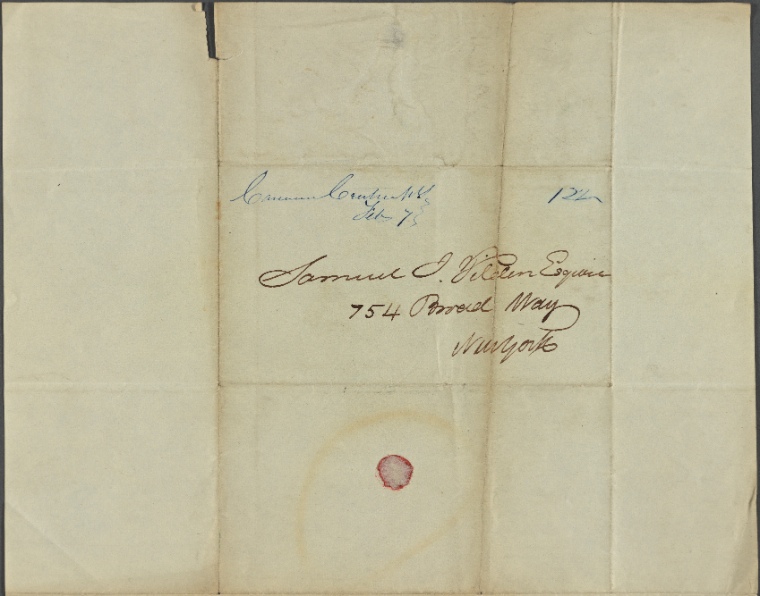 Canaan Centre N.Y. 12½
Feb. 7
Samuel J. Tilden Esquire
754 Broad Way
New York